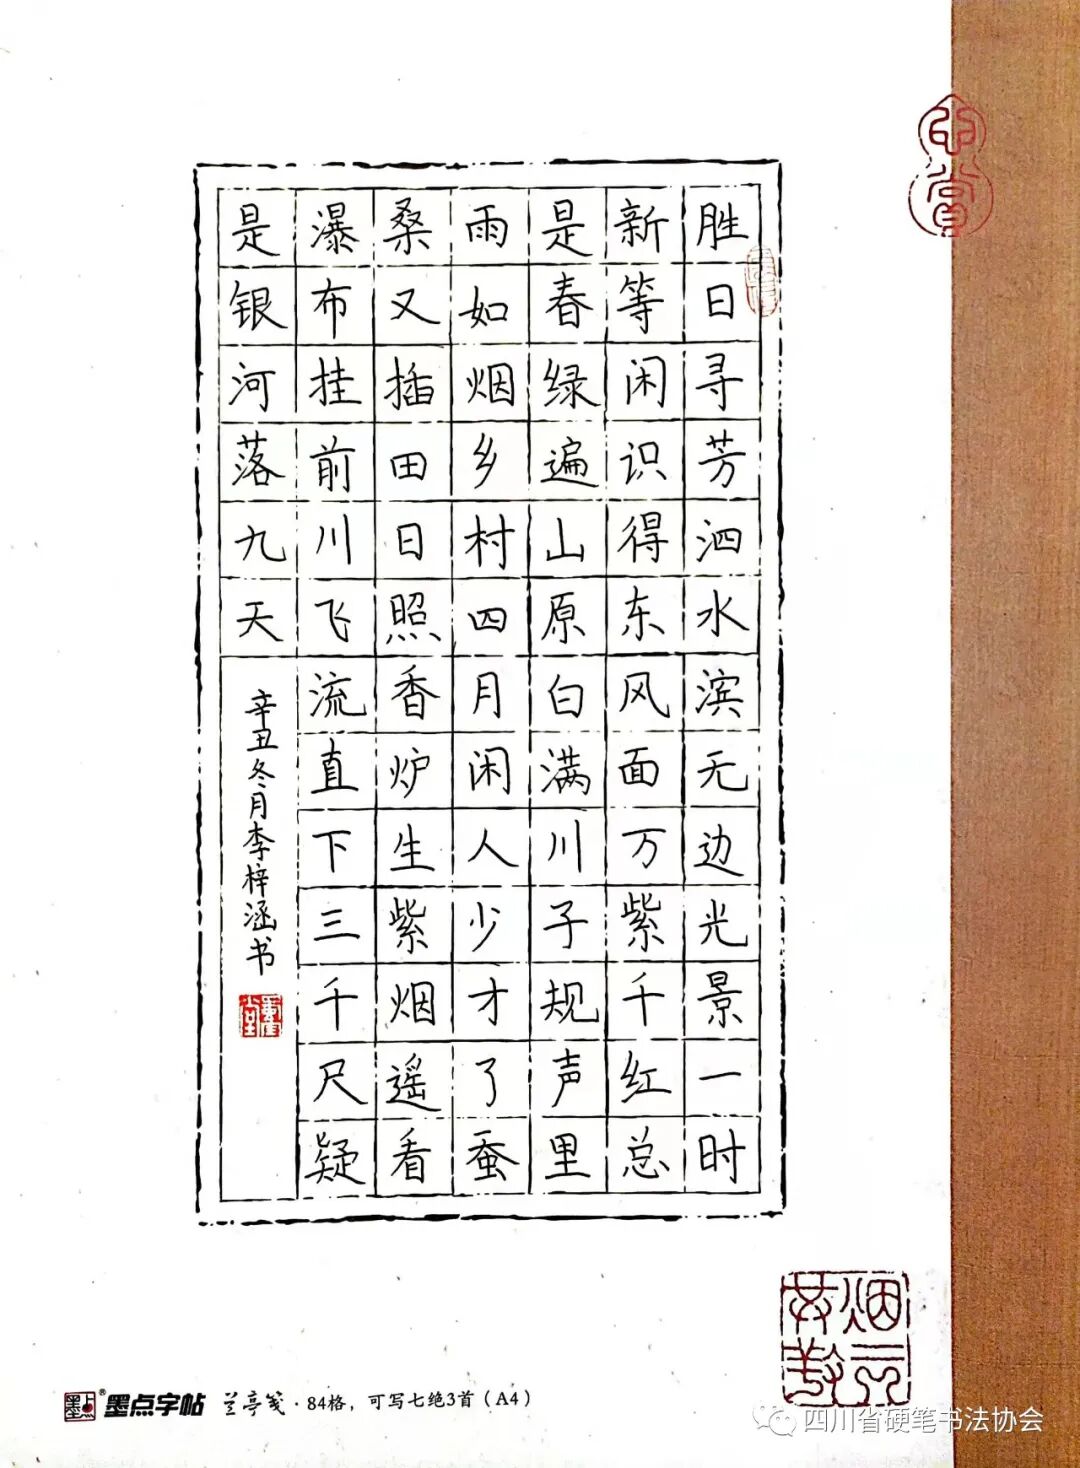 胜日寻芳泗水滨无边光景一时
新等闲识得东风面万紫千红总
是春绿遍山原白满川子规声里
雨如烟乡村四月闲人少才了蚕
桑又插田日照香炉生紫烟遥看
瀑布挂前川飞流直下三千尺疑
是银河落九天
辛丑冬月李梓涵书
墨点字帖 兰亭笺·84格，可写七绝3首（A4）
四川省硬笔书法协会